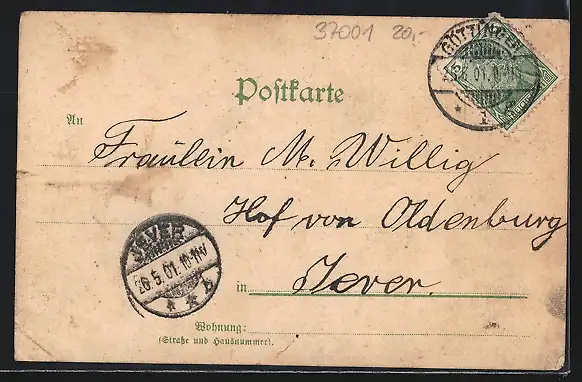 37001 20,-
GÖTTINGEN
Postkarte
An
Fräulein M. Willig
Hof von Oldenburg
JEVER
26.5.01.10-11V
in Jever.
Wohnung:
(Straße und Hausnummer).